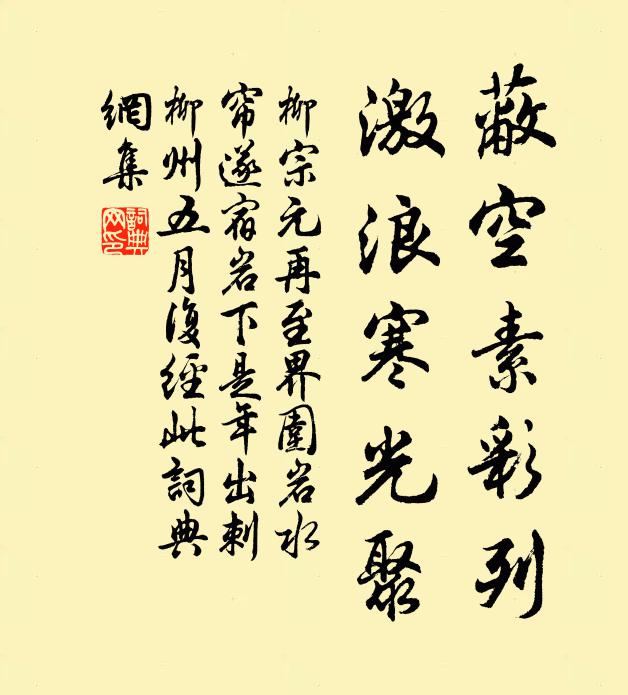 蔽空素彩列
激浪寒光聚
柳宗元再至界圍岩水
帘遂宿岩下是年出刺
柳州五月復經此詞典
網集
詞典
网印